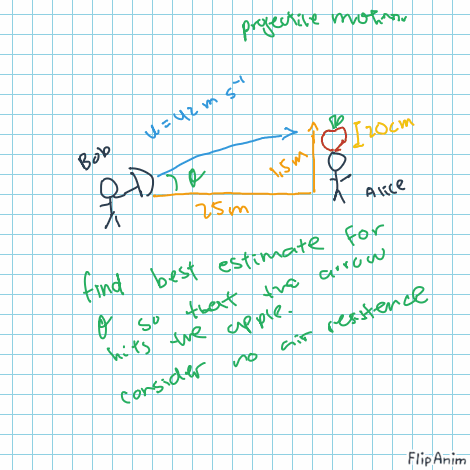 projectile motion.
u = 42 m s⁻¹
20cm
Bob
1.5m
θ
Alice
25m
find best estimate for
θ so that the arrow
hits the apple.
consider no air resistence
FlipAnim